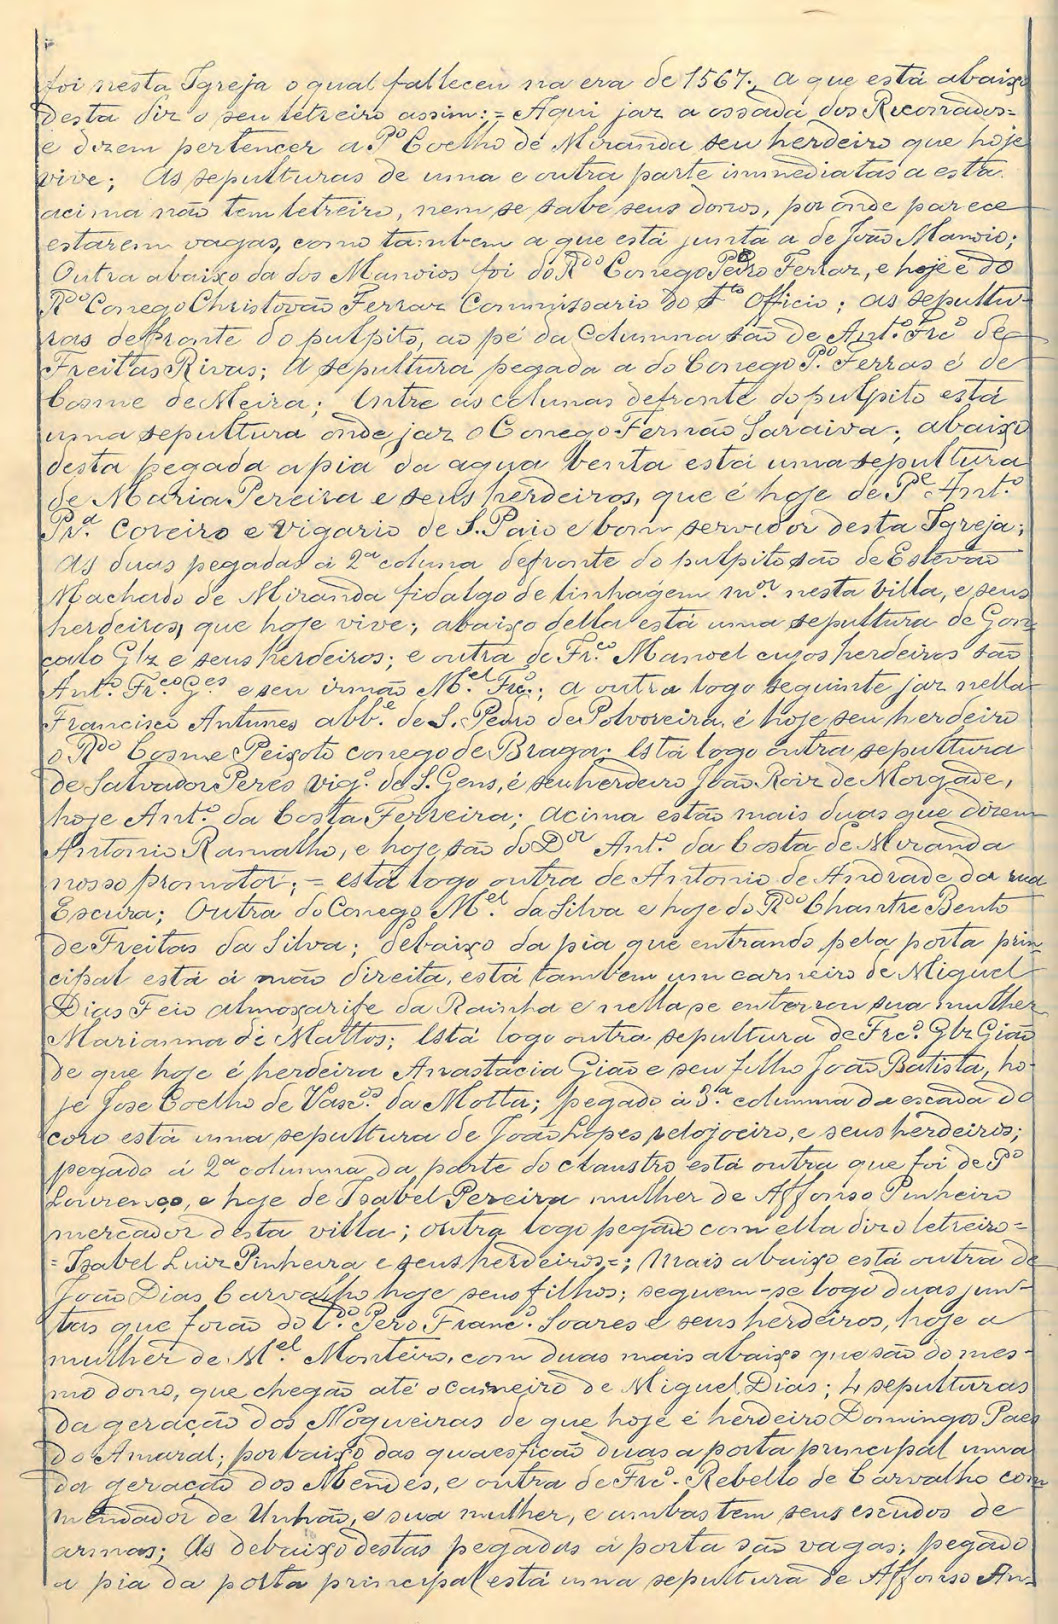 foi nesta Igreja o qual falleceu na era de 1567; a que está abaixo
desta diz o seu letreiro assim: = Aqui jaz a ossada dos Recorrados =
e dizem pertencer a Pº Coelho de Miranda seu herdeiro que hoje
vive; As sepulturas de uma e outra parte immediatas a esta
acima não tem letreiro, nem se sabe seus donos, por onde parece
estarem vagas, como tambem a que está junta a de João Manoio;
Outra abaixo da dos Manoios foi do Rdo Conego Pedro Ferraz, e hoje é do
Rdo Conego Christovão Ferraz Commissario do Sto Officio; as sepultu-
ras defronte do pulpito, ao pé da Columna são de Antº Frcº de
Freitas Rivas; A sepultura pegada a do Conego Pº Ferras é de
Cosme de Meira; Entre as colunas defronte do pulpito está
uma sepultura onde jaz o Conego Fernão Saraiva; abaixo
desta pegada a pia da agua benta está uma sepultura
de Maria Pereira e seus herdeiros, que é hoje de Pe Antº
Prª Coveiro e vigario de S. Paio e bom servidor desta Igreja;
As duas pegadas á 2ª coluna defronte do pulpito são de Estevão
Machado de Miranda fidalgo de linhágem mor nesta villa, e seus
herdeiros, que hoje vive; abaixo della está uma sepultura de Gon-
çalo Glz e seus herdeiros; e outra de Frcº Manoel cujos herdeiros são
Antº Frco Ges e seu irmão Mel Frcº; a outra logo seguinte jaz nella
Francisco Antunes abbe de S. Pedro de Polvoreira, é hoje seu herdeiro
o Rdo Cosme Peixoto conego de Braga; Está logo outra sepultura
de Salvador Peres vigº de S. Gens, é seu herdeiro João Roiz de Morgade,
hoje Antº da Costa Ferreira; acima estão mais duas que dizem
Antonio Ramalho, e hoje são do Dor Antº da Costa de Miranda
nosso promotor; = está logo outra de Antonio de Andrade da rua
Escura; Outra do Conego Mel da Silva e hoje do Rdo Chantre Bento
de Freitas da Silva; debaixo da pia que entrando pela porta prin-
cipal está á mão direita, está tambem um carneiro de Miguel
Dias Feio almoxarife da Rainha e nella se enterrou sua mulher
Marianna de Mattos; Está logo outra sepultura de Frcº Glz Gião
de que hoje é herdeira Anastácia Gião e seu filho João Batista, ho-
je José Coelho de Vascos da Motta; pegado á 3ª columna da escada do
coro está uma sepultura de João Lopes relojoeiro, e seus herdeiros;
pegado á 2ª columna da parte do claustro está outra que foi de Pº
Lourenço, e hoje de Isabel Pereira mulher de Affonso Pinheiro
mercador desta villa; outra logo pegado com ella diz o letreiro =
= Isabel Luiz Pinheira e seus herdeiros =; Mais abaixo está outra de
João Dias Carvalho hoje seus filhos; seguem-se logo duas jun-
tas que forão do Lº Pero Francº Soares e seus herdeiros, hoje a
mulher de Mel Monteiro, com duas mais abaixo que são do mes-
mo dono, que chegão até o carneiro de Miguel Dias; 4 sepulturas
da geração dos Nogueiras de que hoje é herdeiro Domingos Paes
do Amaral; por baixo das quaes ficão duas a porta principal uma
da geração dos Mendes, e outra de Frcº Rebello de Carvalho com-
mendador de Unhão, e sua mulher, e ambas tem seus escudos de
armas; As debaixo destas pegadas a porta são vagas; pegado
a pia da porta principal está uma sepultura de Affonso An-